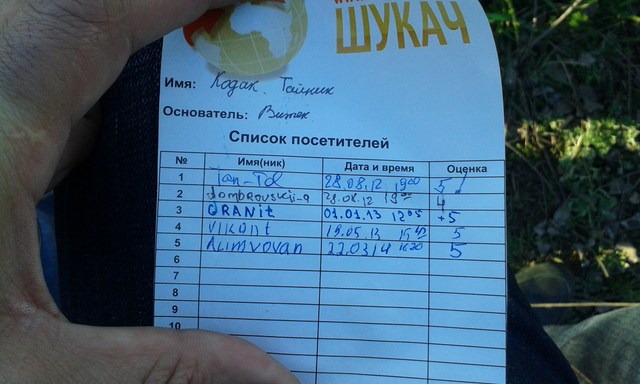 ШУКАЧ
Имя: Кодак. Тайник
Основатель: Витек
Список посетителей
№ Имя(ник) Дата и время Оценка
1 Tan-Tol 28.08.12 19:00 5!
2 dombrovskij-a 28.08.12 4
3 GRANit 01.01.13 12:05 +5
4 vikont 19.05.13 5
5 Alimvovan 22.03.14 5
6
7
8
9
10